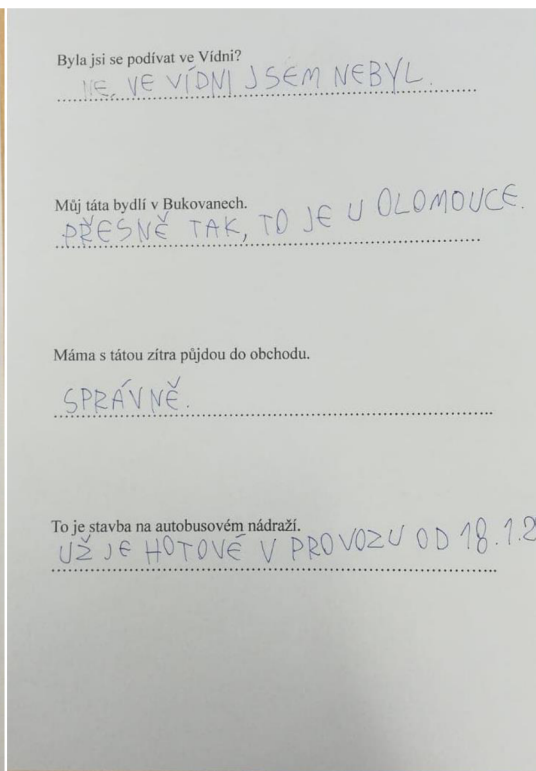 Byla jsi se podívat ve Vídni?
NE, VE VÍDNI JSEM NEBYL.
Můj táta bydlí v Bukovanech.
PŘESNĚ TAK, TO JE U OLOMOUCE.
Máma s tátou zítra půjdou do obchodu.
SPRÁVNĚ.
To je stavba na autobusovém nádraží.
UŽ JE HOTOVÉ V PROVOZU OD 18.1.2